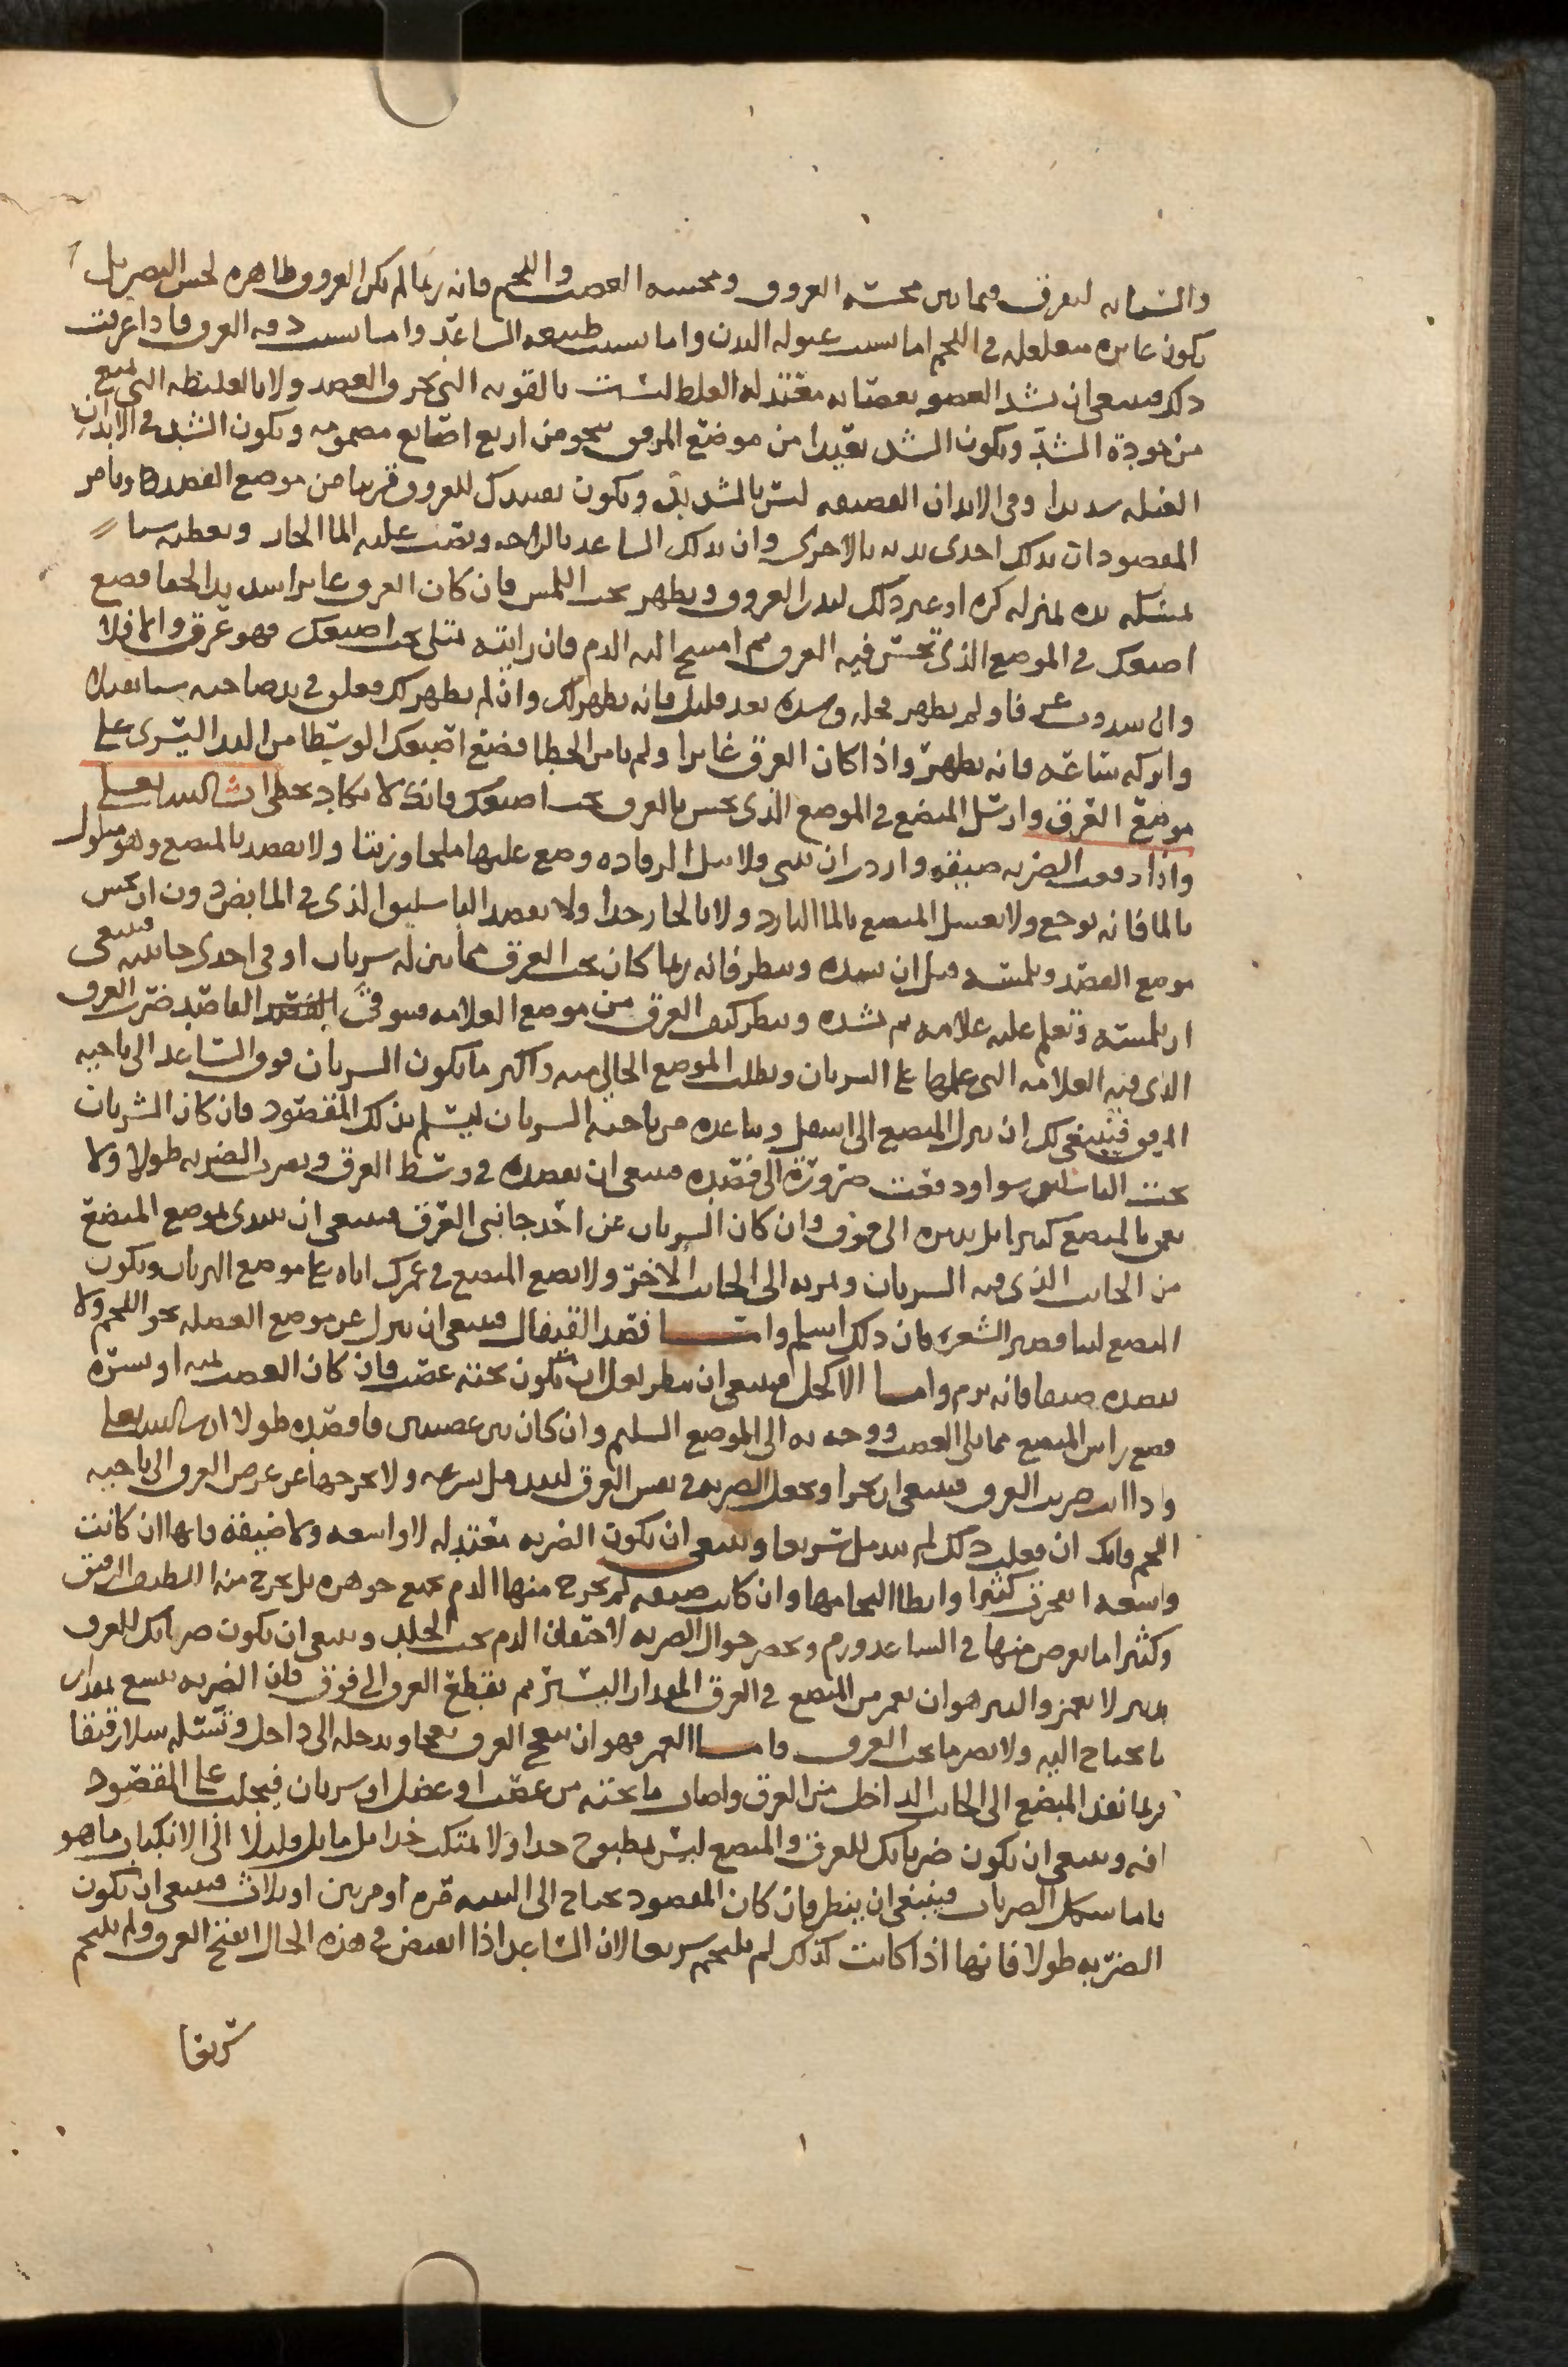 والسبابه ليفرق فيما بين محسه العروق ومحسه العصب واللحم فانه ربما لم تكن العروق ظاهره لحس البصر بل
تكون غايره متغلغله في اللحم اما بسبب عبوله البدن واما بسبب طبيعه الساعد واما بسبب دقه العرق فاذا عرفت
ذلك فينبغي ان تشد العضو بعصابه معتدله الغلظ ليست بالقويه التي تحز والعضد ولا بالغليظه التي تمنع
من جودة الشد ويكون الشد بعيدا من موضع المرفق بنحو من اربع اصابع مضمومه ويكون الشد في الابدان
العبله شديدا وفي الابدان القضيفه ليس بالشديد ويكون تقييدك للعروق قريبا من موضع الفصد وتامر
المفصود ان يدلك احدى يديه بالاخرى وان يدلك الساعد بالراحه وتصب عليه الما الحار وتعطيه شيا
يمسكه بيده بمنزله كره او غير ذلك ليدر العروق ويظهر تحت اللمس فان كان العرق غايرا شديد الخفا فضع
اصبعك في الموضع الذي تحس فيه العرق ثم امسح اليه الدم فان رايته يمتلي تحت اصبعك فهو عرق والا فلا
وان شددت عرقا ولم يظهر فحله وشده بعد قليل فانه يظهر لك وان لم يظهر لك فعلق في يد صاحبه شيا ثقيلا
واتركه ساعه فانه يظهر واذا كان العرق غايرا ولم تامن الخطا فضع اصبعك الوسطا من اليد اليسرى على
موضع العرق وارسل المبضع في الموضع الذي تحس بالعرق تحت اصبعك فانك لا تكاد تخطي ان شا الله تعالى
واذا وقعت الضربه ضيقه واردت ان تثني ولا تبل الرفاده وضع عليها ملحا وزيتا ولا تفصد بالمبضع وهو مبلول
بالما فانه يوجع ولا تغسل المبضع بالما البارد ولا بالحار جدا ولا تفصد الباسليق الذي في المابض دون ان تجس
موضع الفصد وتلمسه قبل ان تشده وتنظر فانه ربما كان تحت العرق مماس له شريان او في احدى جانبيه فينبغي
ان تلمسه وتعلم عليه علامه ثم تشده وتنظر كيف العرق من موضع العلامه فيتوقى الفاصد ضرب العرق
الذي فيه العلامه التي علمها على الشريان وتطلب الموضع الخالي منه واكثر ما يكون الشريان فوق الساعد الى ناحيه
المرفق فينبغي لك ان تنزل المبضع الى اسفل وتباعده من ناحيه الشريان ليسلم بذلك المفصود فان كان الشريان
تحت الباسليق سوا ودفعت ضرورة الى فصده فينبغي ان تفصده في وسط العرق وتصير الضربه طولا ولا
تغمز بالمبضع كثيرا بل يديره الى فوق وان كان الشريان عن احد جانبي العرق فينبغي ان تبتدي بموضع المبضع
من الجانب الذي فيه الشريان وتمر به الى الجانب الاخر ولا تضع المبضع في غمزك اياه على موضع الشريان ويكون
المبضع لينا قصير الشعره فان ذلك اسلم واما فصد القيفال فينبغي ان تنزل عن موضع العضله نحو اللحم ولا
تفصده ضيقا فانه يرم واما الاكحل فينبغي ان تنظر لعل ان يكون تحته عصب فان كان العصب يمنه او يسره
فضع راس المبضع مما يلي العصب ووجه به الى الموضع السليم وان كان بين عصبين فافصده طولا ان شا الله تعالى
واذا انت ضربت العرق فينبغي ان تحرا وتجعل الضربه في نفس العرق ليندمل بسرعه ولا تخرجها عن عرض العرق الى ناحيه
اللحم فانك ان فعلت ذلك لم يندمل سريعا وينبغي ان تكون الضربه معتدله لا واسعه ولا ضيقه فانها ان كانت
واسعه انخرق كثيرا وابطا التحامها وان كانت ضيقه لم يخرج منها الدم بجميع جوهره بل يخرج منه اللطيف الرقيق
وكثيرا ما يعرض منها في الساعد ورم ويخضر حوالي الضربه لاحتقان الدم تحت الجلد وينبغي ان تكون ضرباتك للعرق
بنبر لا بغمز والنبر هو ان تغمز من المبضع في العرق المقدار اليسير ثم تقطع العرق الى فوق فان الضربه تتسع بمقدار
ما تحتاج اليه ولا يضر ما تحت العرق واما الغمز فهو ان تبعج العرق بعجا وتدخله الى داخل وتسله سلا رقيقا
فربما نفذ المبضع الى الجانب الداخل من العرق واصاب ما تحته من عصب او عضل او شريان فيجلب على المفصود
افه وينبغي ان تكون ضرباتك للعرق والمبضع ليس بمطبوح جدا ولا بمتك جدا بل مايل قليلا الى الانكباب ما هو
فاما شكل الضربات فينبغي ان ينظر فان كان المفصود يحتاج الى التثنيه مره او مرتين او ثلاث فينبغي ان تكون
الضربه طولا فانها اذا كانت كذلك لم يلتحم سريعا لان الساعد اذا انقبض في هذه الحال انفتح العرق ولم يلتحم
سريعا